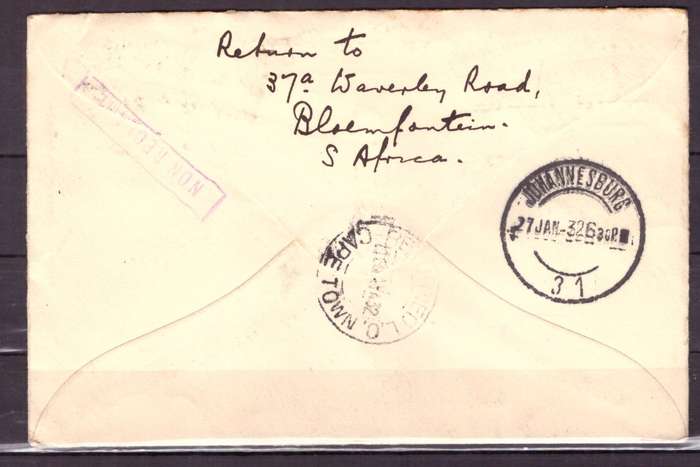 Return to
37a Waverley Road,
Bloemfontein.
S Africa.
JOHANNESBURG
27 JAN-32 6 30P
31
CAPE TOWN
NON